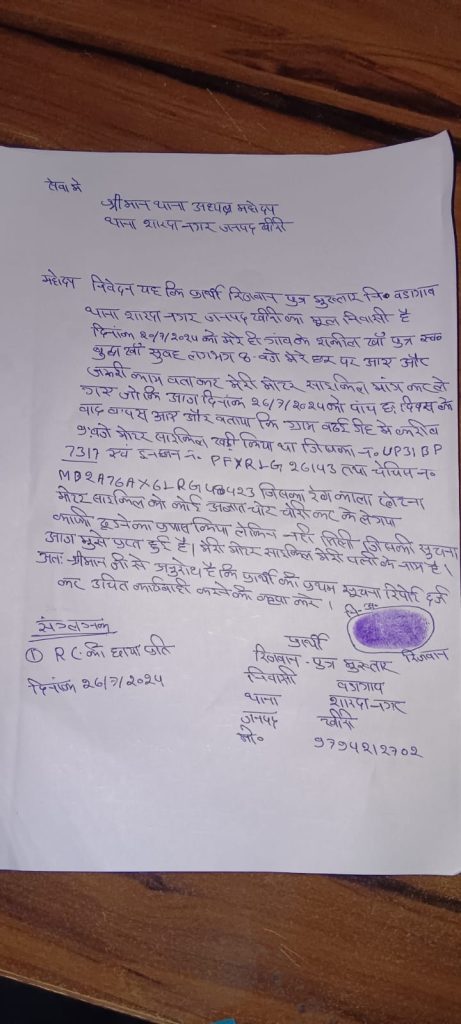 सेवा मे
श्रीमान थाना अध्यक्ष महोदय
थाना शारदा नगर जनपद खीरी
महोदय निवेदन यह कि प्रार्थी रिजवान पुत्र मुख्तार नि० बडागाव
थाना शारदा नगर जनपद खीरी का मूल निवासी है
दिनांक 20/7/2024 को मेरे ही गांव के शकील खाँ पुत्र स्व०
खाँ सुबह लगभग 8 बजे मेरे घर पर आए और
जरूरी काम बता कर मेरी मोटर साइकिल मांग कर ले
गए जो कि आज दिनांक 26/7/2024 को पांच छः दिवस के
बाद वापस आए और बताया कि ग्राम के करीब
9 बजे मोटर साइकिल खड़ी किया था जिसका न० UP31BP
7317 एवं इन्जन न० तथा चेचिस न०
जिसका रंग काला
मोटर साइकिल को कोई अज्ञात चोर चोरी कर के ले गया
काफी ढूढने का प्रयास किया लेकिन नही मिली जिसकी सूचना
आज मुझे प्राप्त हुई है। मेरी मोटर साइकिल मेरी पत्नी के नाम है।
अतः श्रीमान जी से अनुरोध है कि प्रार्थी की प्रथम सूचना रिपोर्ट दर्ज
कर उचित कार्यवाही करने की कृपा करे।
नि० अं०
संलग्नक
① R C. की छाया प्रति
दिनांक 26/7/2024
प्रार्थी
रिजवान पुत्र मुख्तार
रिजवान
निवासी बडागाव
थाना शारदा नगर
जनपद खीरी
मो० 9794212702